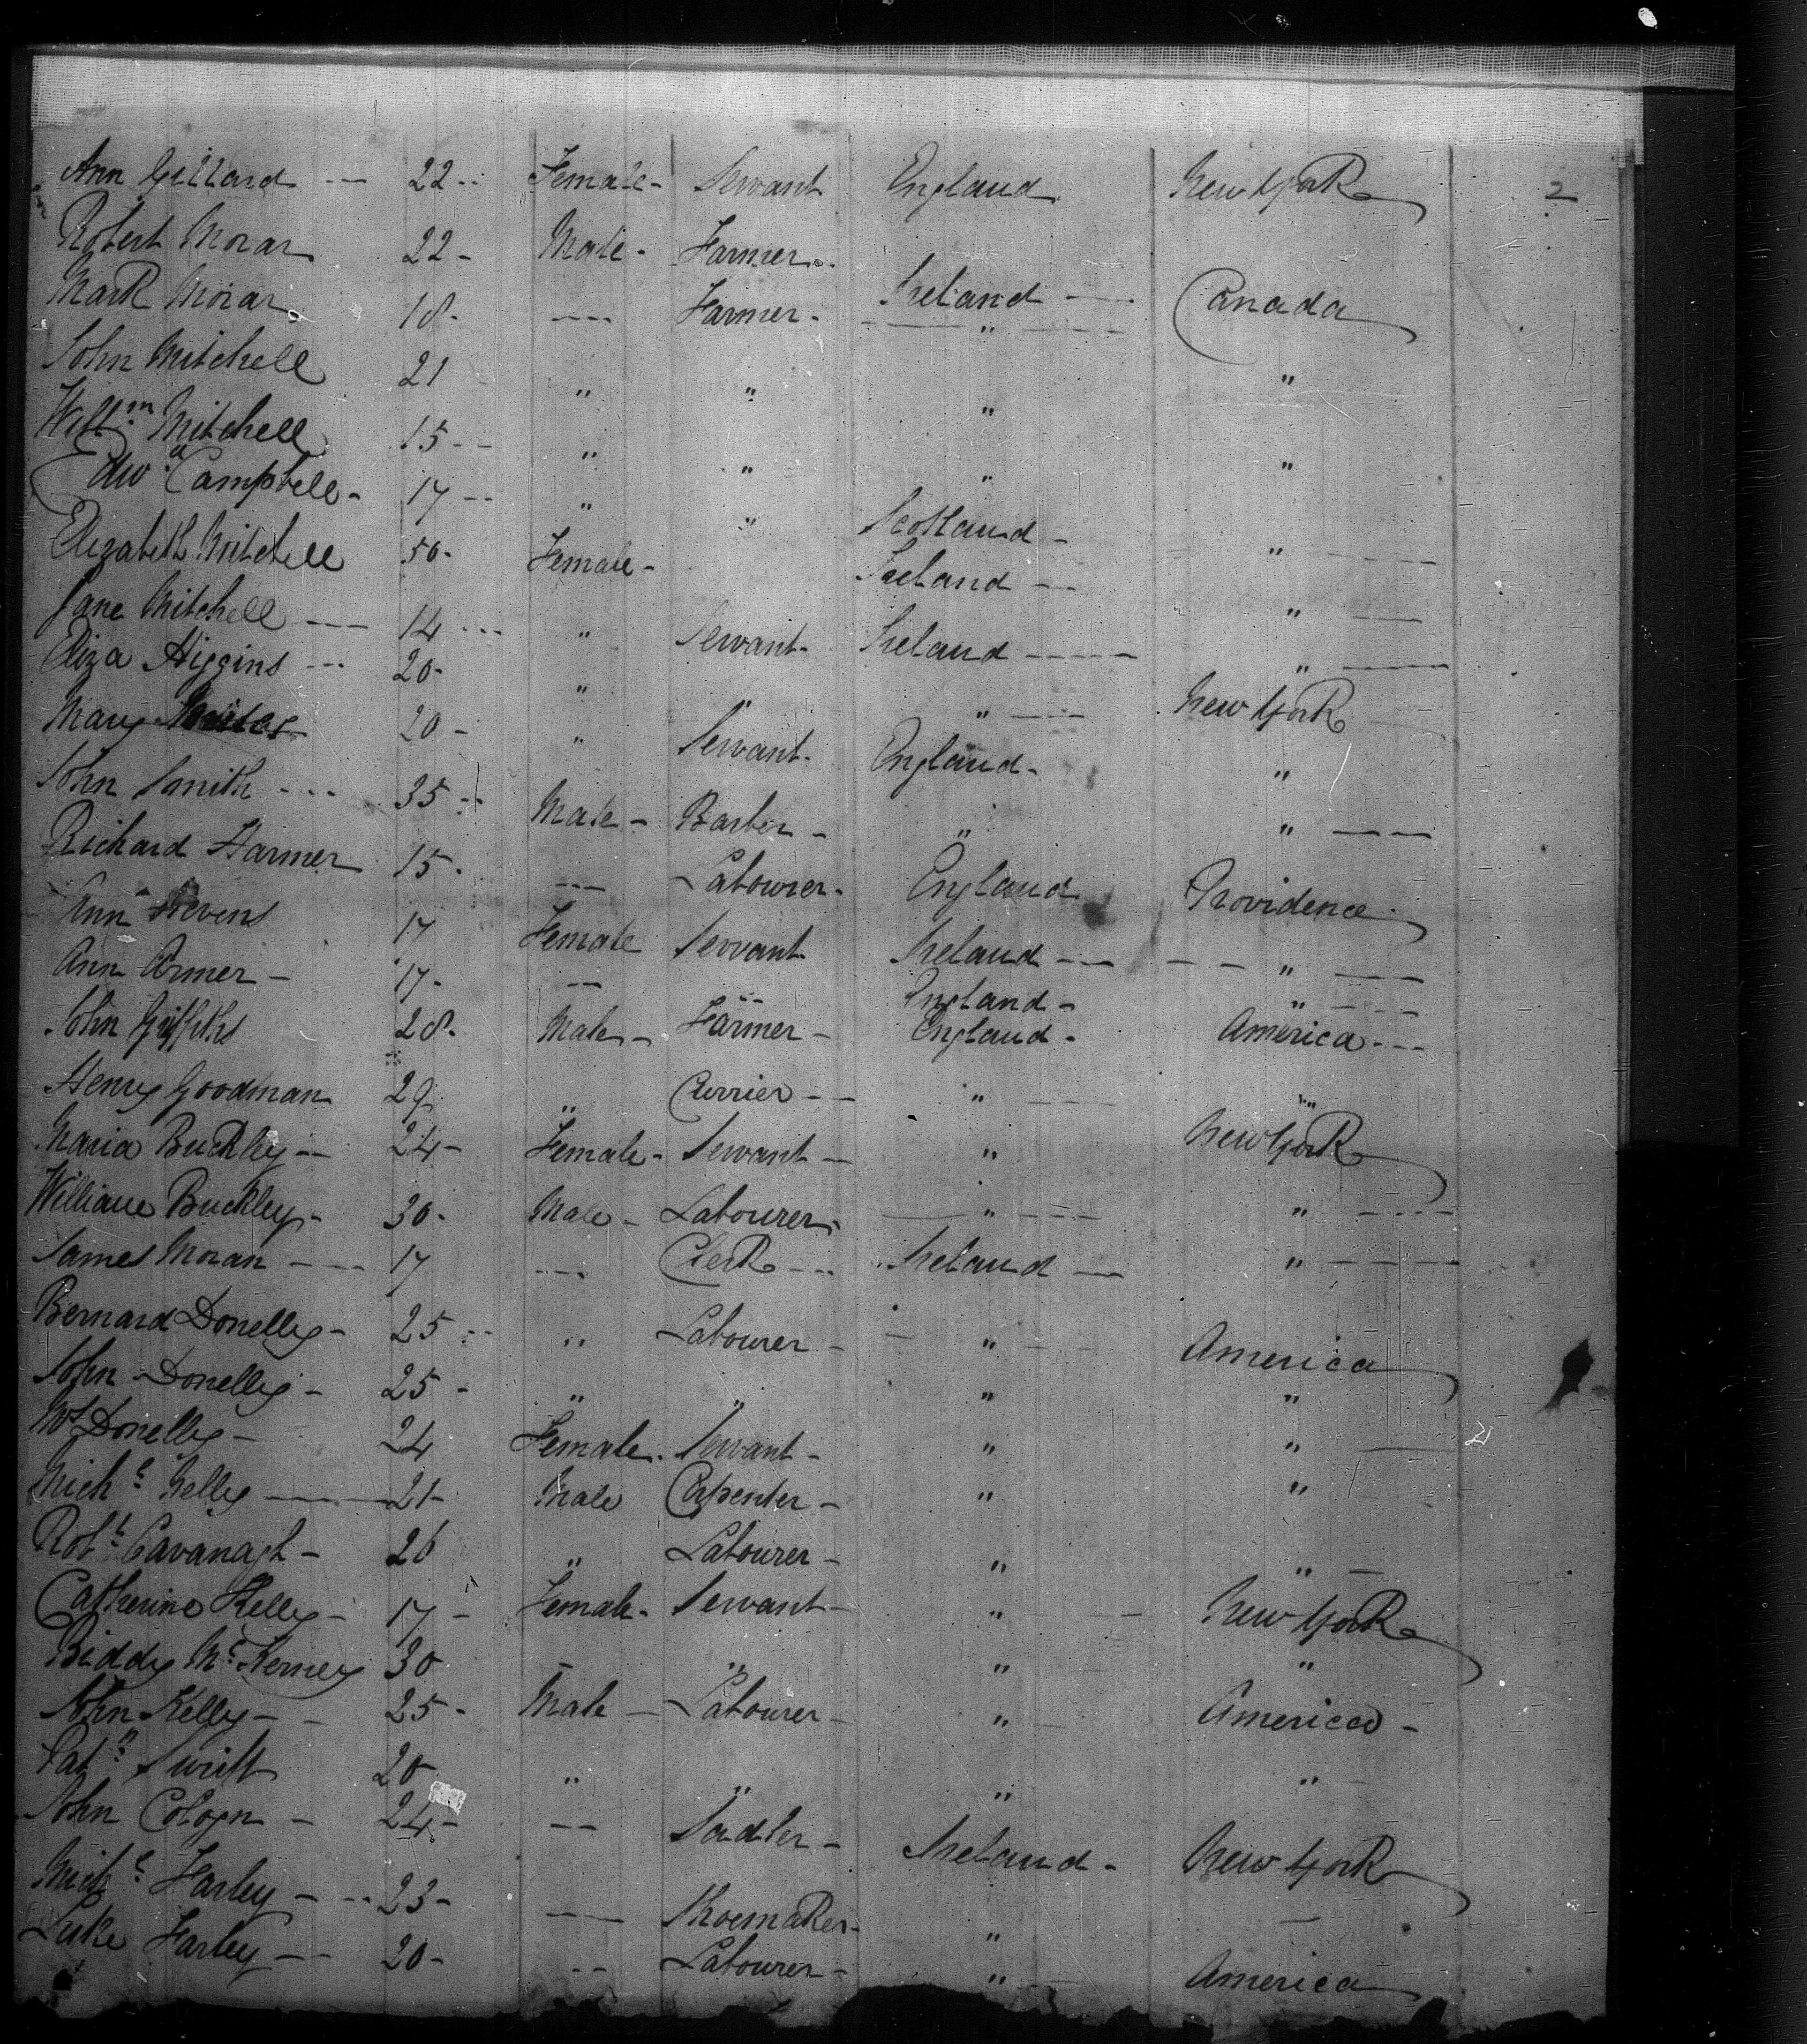 Ann Gillard --- 22 -- Female - Servant England New York 2
Robert Moran 22 - Male - Farmer - Ireland --- Canada
Mark Moran 18 - --- Farmer - --- " --- "
John Mitchell 21 " " " "
Willm Mitchell 15 -- " " " "
Edwd Campbell - 17 -- " " Scotland - " ---
Elizabeth Mitchell 50 - Female - Ireland --- " ---
Jane Mitchell --- 14 --- " Servant - Ireland --- " ---
Eliza Higgins --- 20 - " " " --- New York
Mary 20 - " Servant - England - "
John Smith --- 35 -- Male - Barber - " " ---
Richard Harmer 15 - --- Labourer - England Providence
Ann Stevens 17 Female Servant Ireland --- --- " ---
Ann Armer - 17 - -- -- England - " ---
John Griffiths 28 - Male - Farmer - England - America ---
Henry Goodman 29 " Currier -- " --- "
Maria Buckley -- 24 - Female - Servant - " New York
William Buckley - 30 - Male - Labourer - --- " --- " ---
James Moran --- 17 --- Clerk --- Ireland --- " ---
Bernard Donelly - 25 -- " Labourer - - " -- America
John Donelly - 25 - " " " "
Donelly - 24 Female - Servant - " " ---
Michl Kelly --- 21 - Male Carpenter - " "
Robt Cavanagh - 26 " Labourer - " " -
Catherine Kelly - 17 - Female - Servant - " -- New York
Biddy Mc Kerney 30 - " " "
John Kelly - - 25 - Male - Labourer - " - America -
Patk Swift 20 " " " "
John Cologn - 24 - -- Sadler - Ireland - New York
Michl Farley --- 23 - --- Shoemaker - " -
Luke Farley -- 20 - -- Labourer - " - America